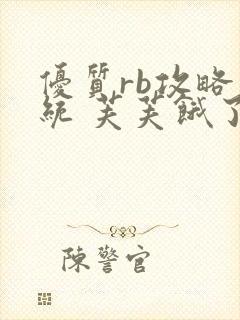 優質rb攻略
統 芙芙餓了
陳警官